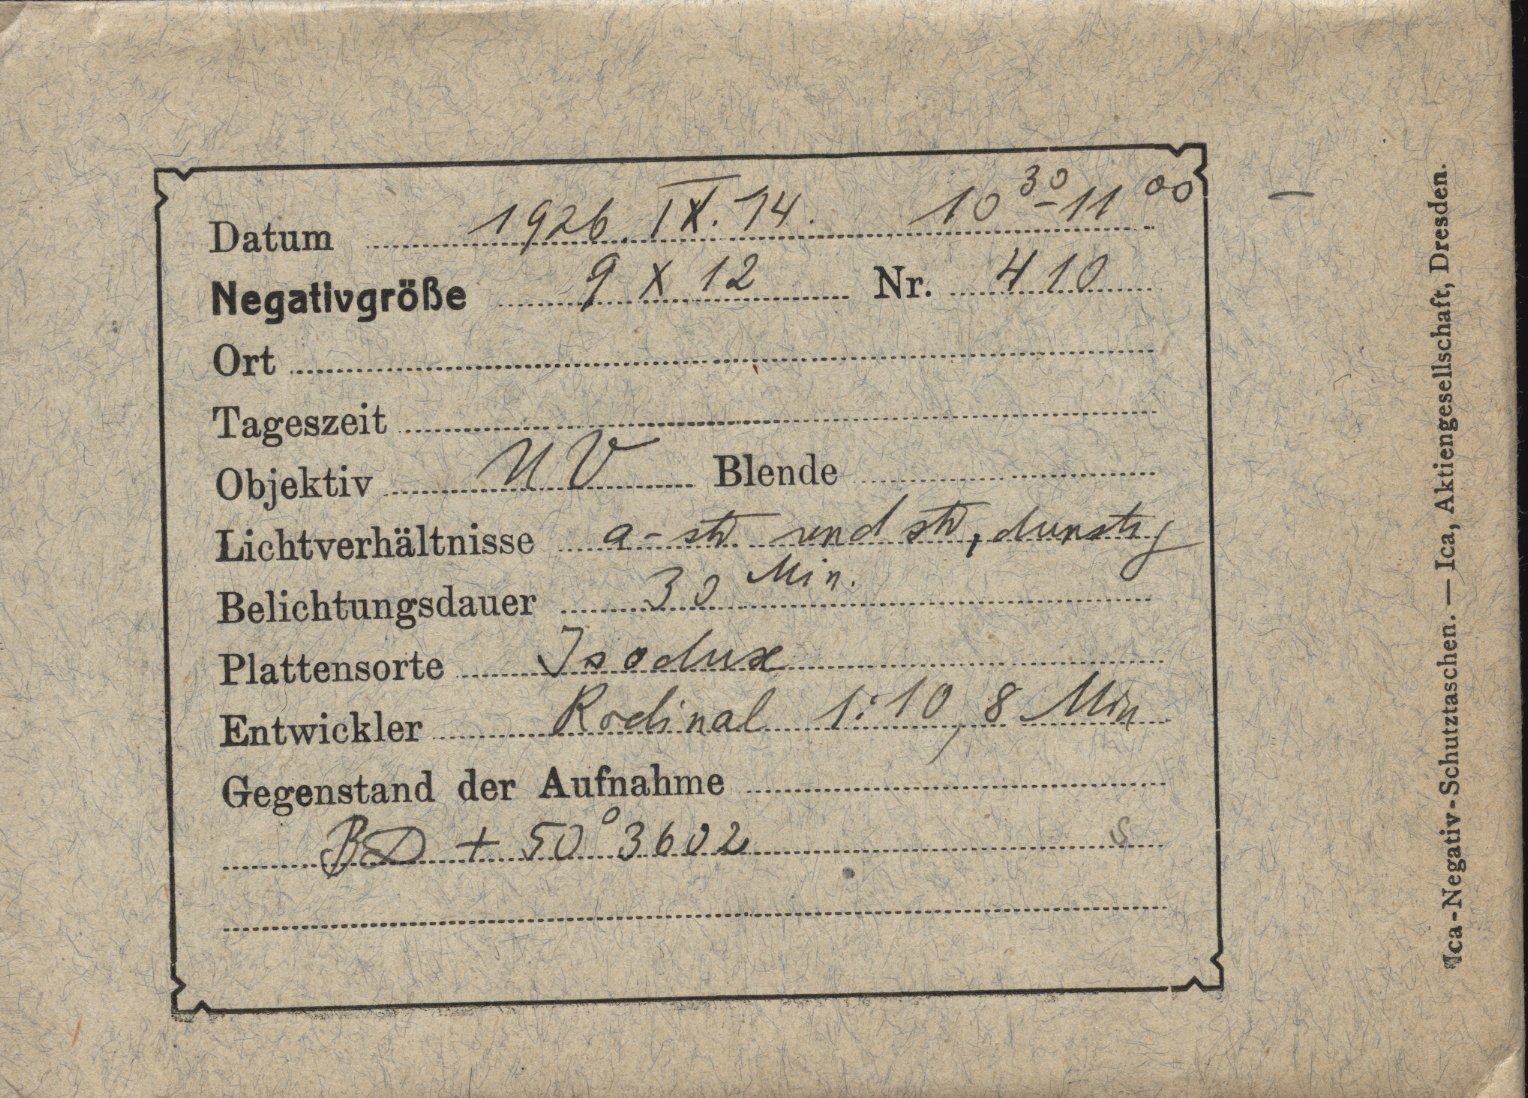 Datum 1926. IX. 14. 10 30 - 11 00
Negativgröße 9 X 12 Nr. 410
Ort
Tageszeit
Objektiv UV Blende
Lichtverhältnisse a - str und str, dunstig
Belichtungsdauer 30 Min.
Plattensorte Isodux
Entwickler Rodinal 1:10, 8 Min
Gegenstand der Aufnahme
BD + 50° 3602 S
Ica-Negativ-Schutztaschen. — Ica, Aktiengesellschaft, Dresden.